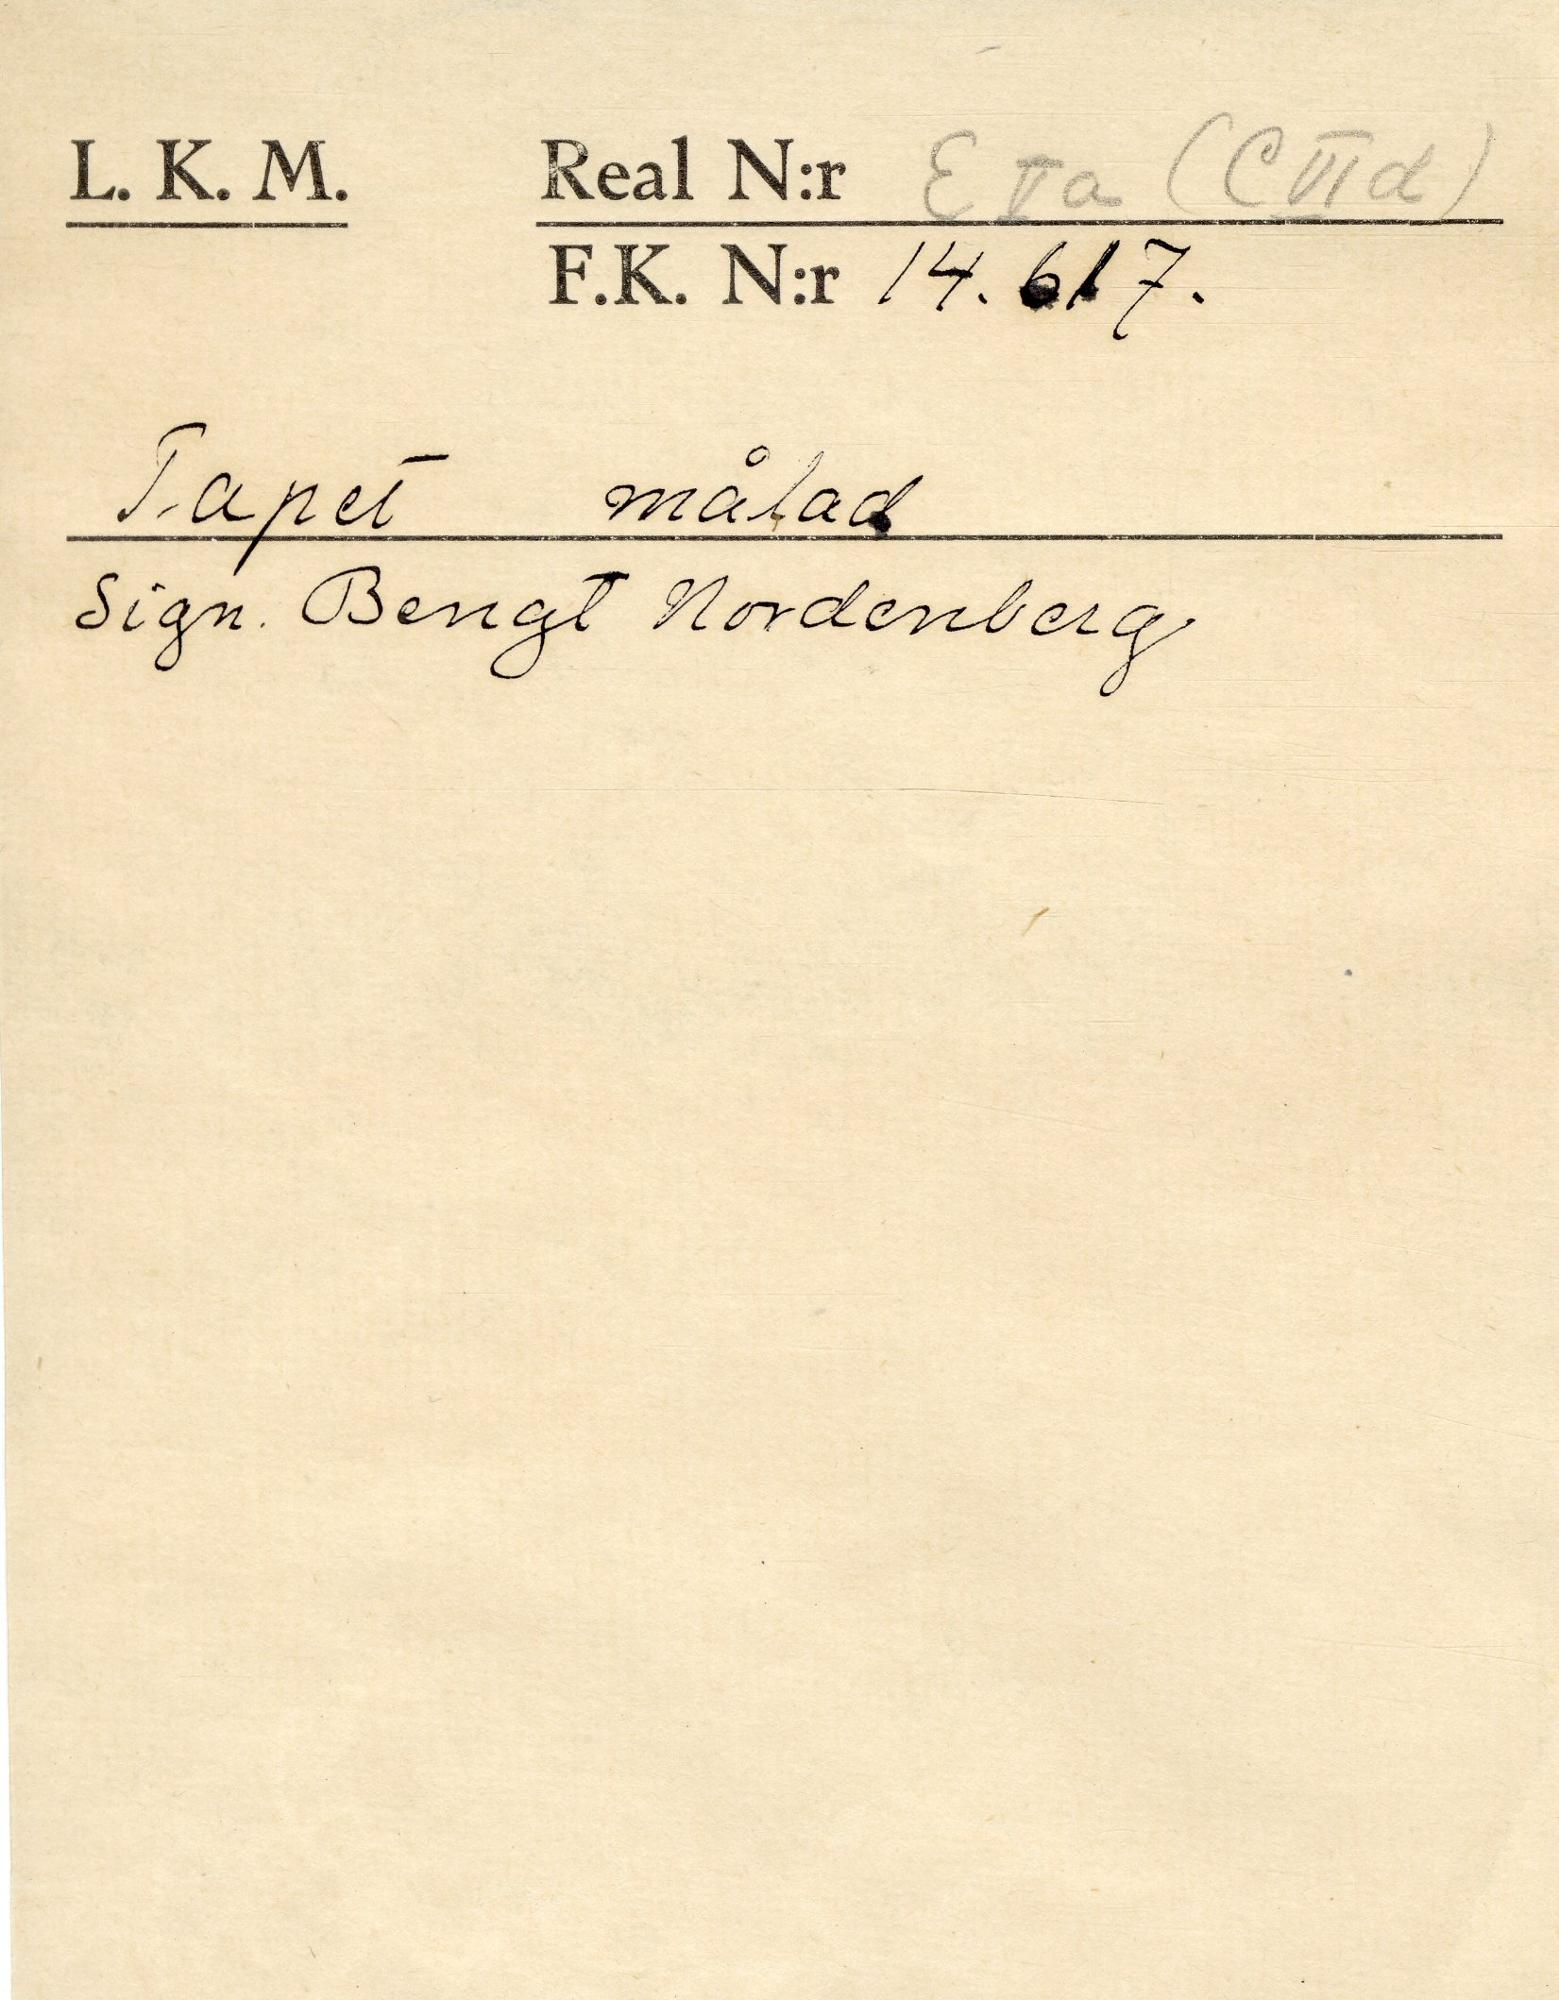 L. K. M. Real N:r E V a (C VI d)
F.K. N:r 14.617.
Tapet målad
Sign. Bengt Nordenberg